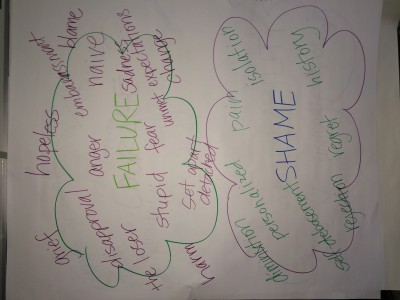 blame
embarrassment
hopeless
grief
naive
sadness
unmet expectations
change
FAILURE
anger
fear
disapproval
stupid
the loser
set apart
detached
harm
isolation
pain
history
SHAME
personalised
regret
rejection